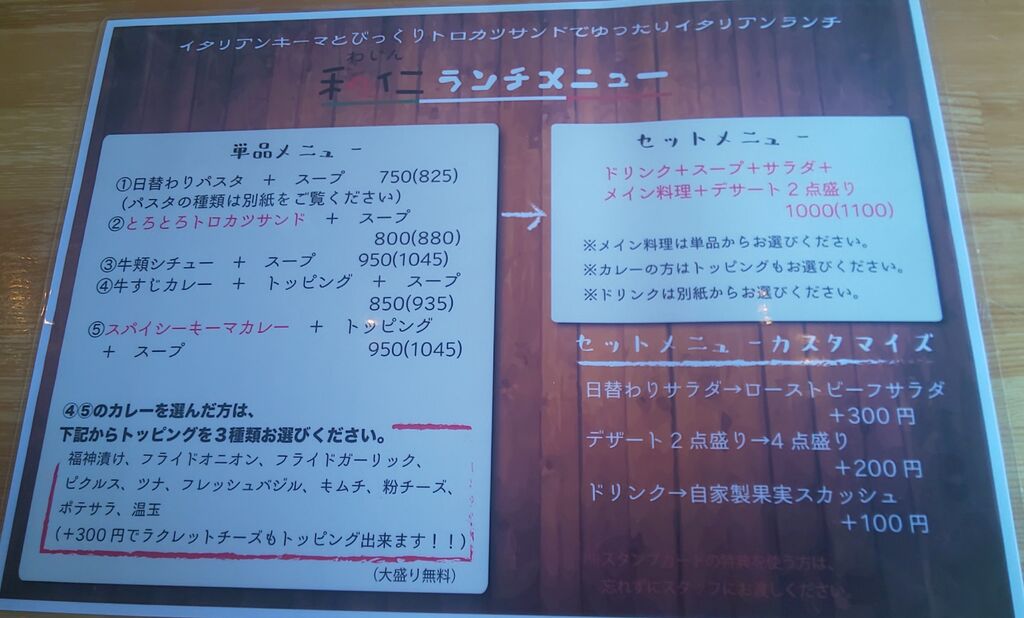 イタリアンキーマとびっくりトロカツサンドでゆったりイタリアンランチ
わじん
和仁 ランチメニュー
単品メニュー
①日替わりパスタ ＋ スープ 750(825)
(パスタの種類は別紙をご覧ください)
②とろとろトロカツサンド ＋ スープ
800(880)
③牛頬シチュー ＋ スープ 950(1045)
④牛すじカレー ＋ トッピング ＋ スープ
850(935)
⑤スパイシーキーマカレー ＋ トッピング
＋ スープ 950(1045)
④⑤のカレーを選んだ方は、
下記からトッピングを３種類お選びください。
福神漬け、フライドオニオン、フライドガーリック、
ピクルス、ツナ、フレッシュバジル、キムチ、粉チーズ、
ポテサラ、温玉
(＋300円でラクレットチーズもトッピング出来ます！！)
(大盛り無料)
→
セットメニュー
ドリンク＋スープ＋サラダ＋
メイン料理＋デザート２点盛り
1000(1100)
※メイン料理は単品からお選びください。
※カレーの方はトッピングもお選びください。
※ドリンクは別紙からお選びください。
セットメニューカスタマイズ
日替わりサラダ→ローストビーフサラダ
＋300円
デザート２点盛り→４点盛り
＋200円
ドリンク→自家製果実スカッシュ
＋100円
※スタンプカードの特典を使う方は、
忘れずにスタッフにお渡しください。